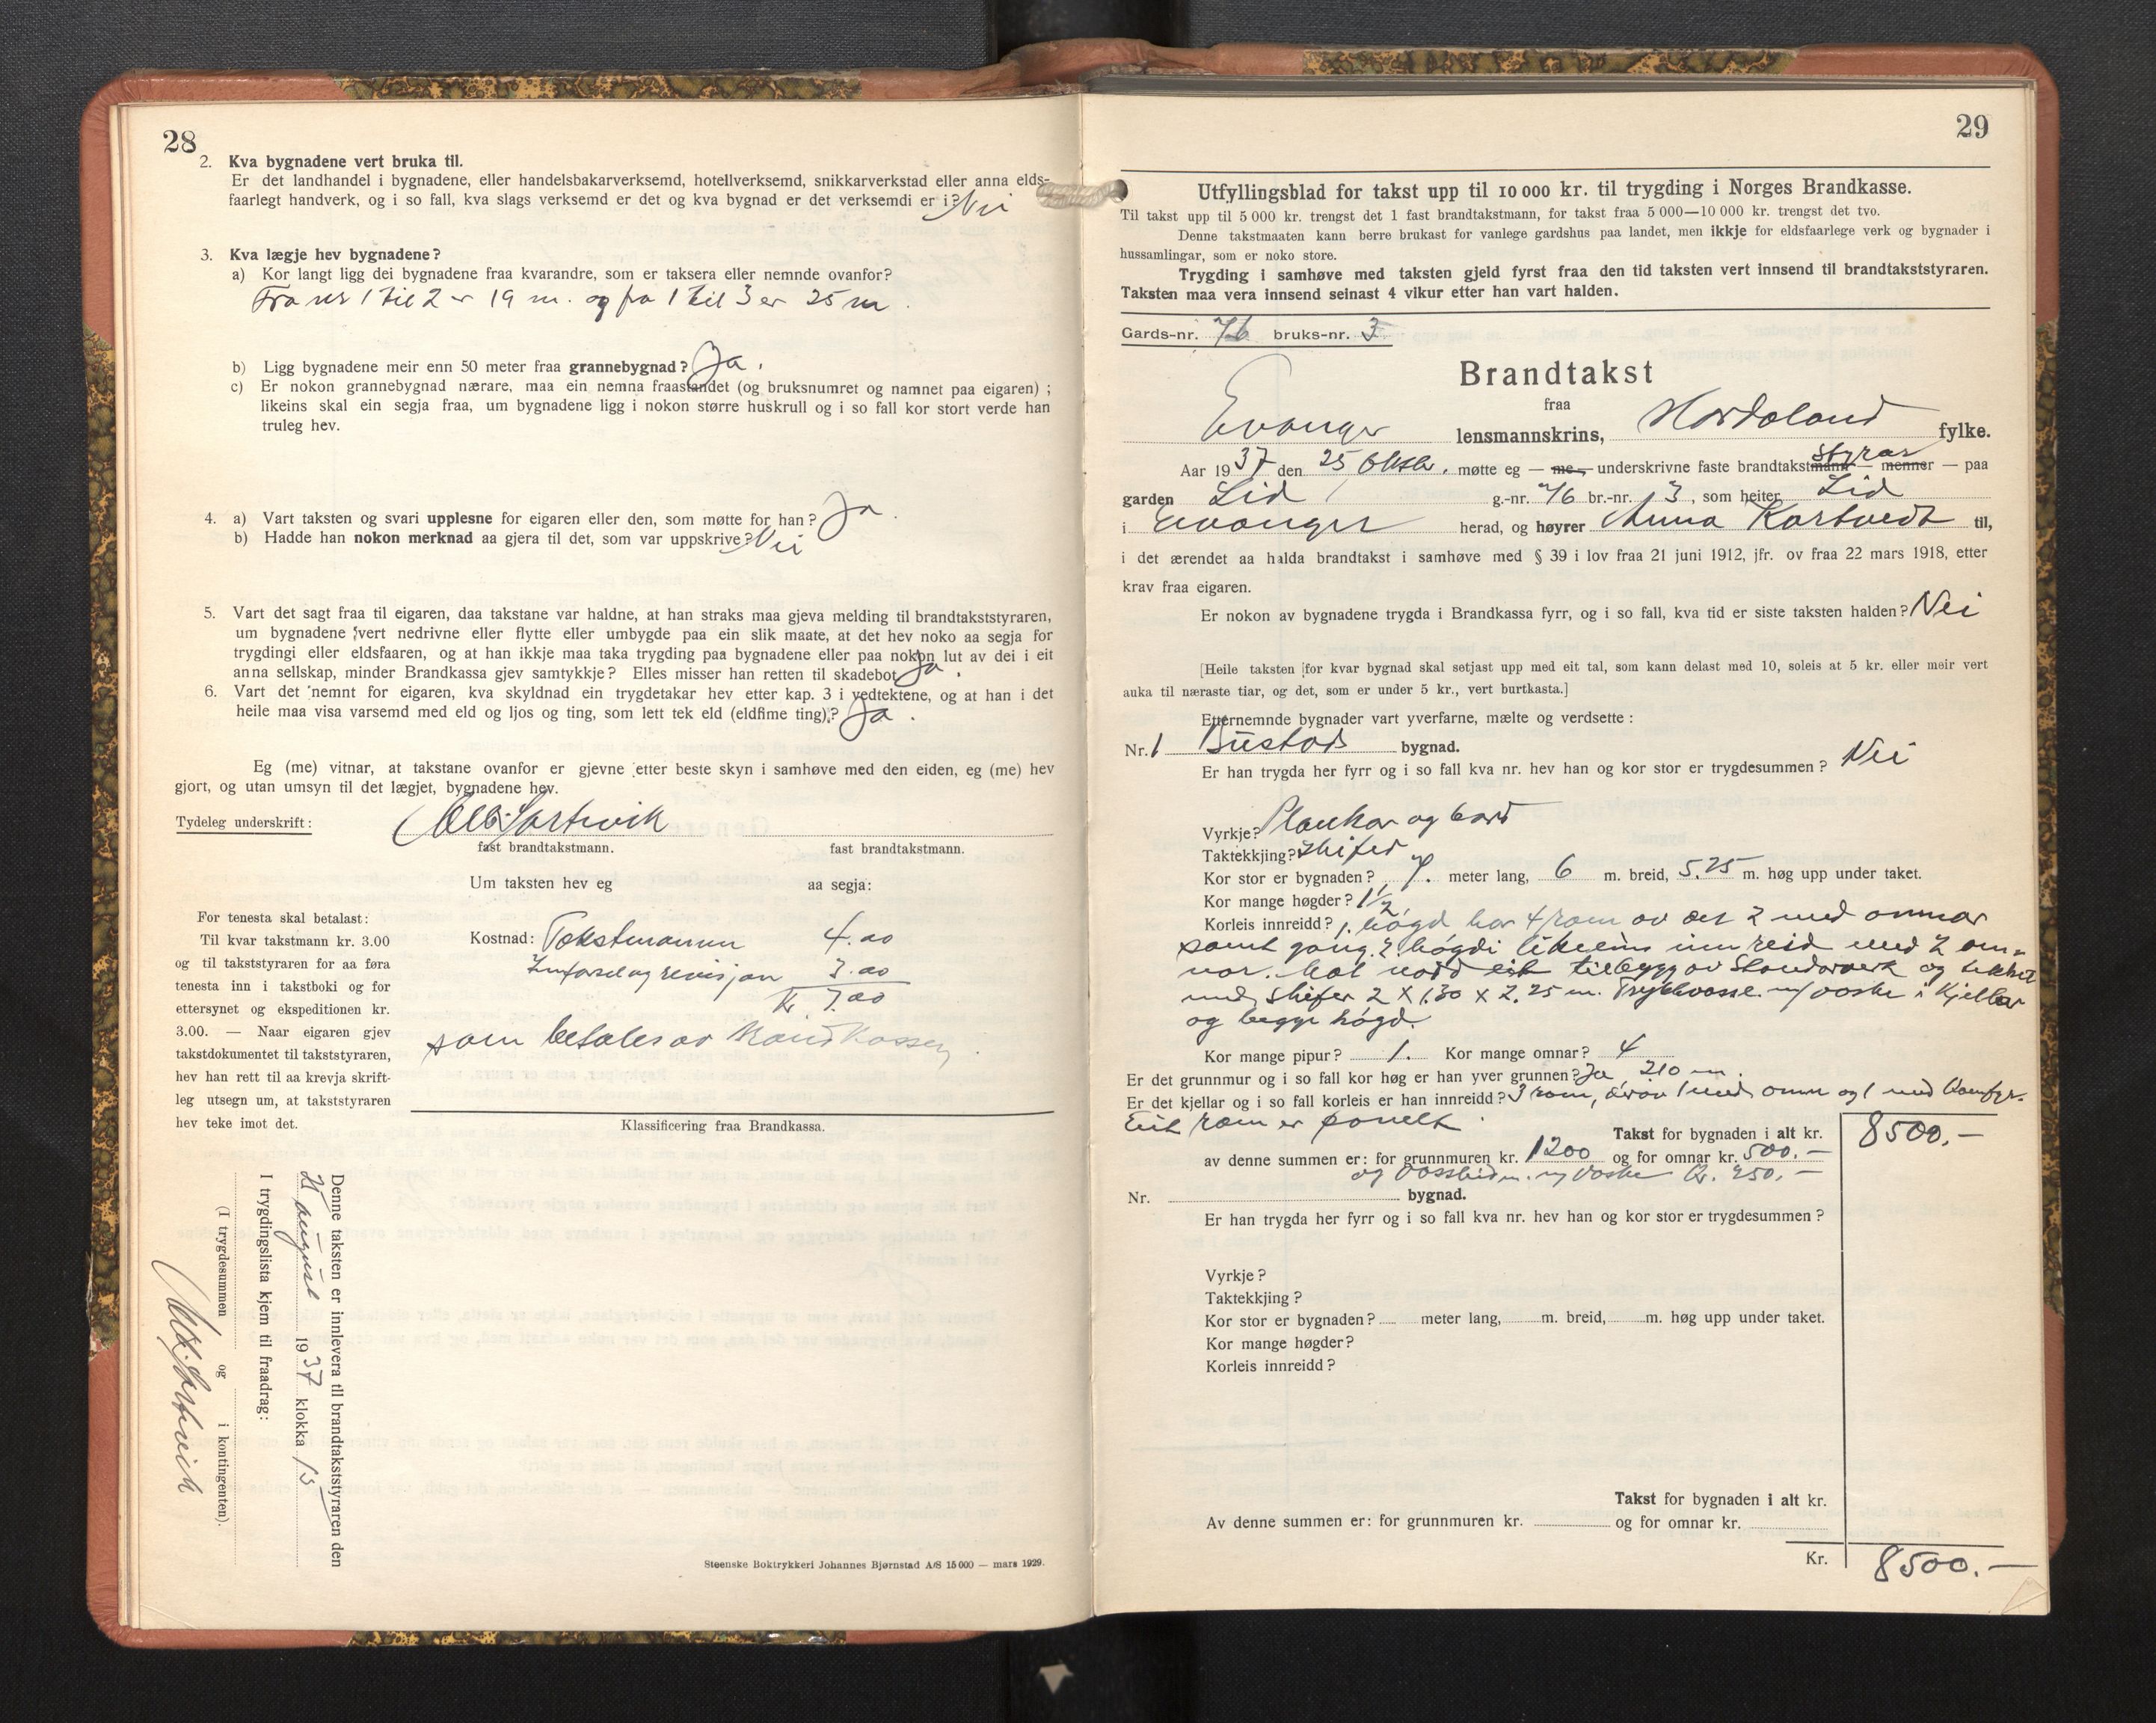 28
2. Kva bygnadene vert bruka til.
Er det landhandel i bygnadene, eller handelsbakarverksemd, hotellverksemd, snikkarverkstad eller anna elds-
faarlegt handverk, og i so fall, kva slags verksemd er det og kva bygnad er det verksemdi er i? Nei
3. Kva lægje hev bygnadene?
a) Kor langt ligg dei bygnadene fraa kvarandre, som er taksera eller nemnde ovanfor?
Fra nr 1 til 2 er 19 m. og fra 1 til 3 er 25 m.
b) Ligg bygnadene meir enn 50 meter fraa grannebygnad? Ja.
c) Er nokon grannebygnad nærare, maa ein nemna fraastandet (og bruksnumret og namnet paa eigaren) ;
likeins skal ein segja fraa, um bygnadene ligg i nokon større huskrull og i so fall kor stort verde han
truleg hev.
4. a) Vart taksten og svari upplesne for eigaren eller den, som møtte for han? Ja.
b) Hadde han nokon merknad aa gjera til det, som var uppskrive? Nei
5. Vart det sagt fraa til eigaren, daa takstane var haldne, at han straks maa gjeva melding til brandtakststyraren,
um bygnadene vert nedrivne eller flytte eller umbygde paa ein slik maate, at det hev noko aa segja for
trygdingi eller eldsfaaren, og at han ikkje maa taka trygding paa bygnadene eller paa nokon lut av dei i eit
anna sellskap, minder Brandkassa gjev samtykkje? Elles misser han retten til skadebot Ja.
6. Vart det nemnt for eigaren, kva skyldnad ein trygdetakar hev etter kap. 3 i vedtektene, og at han i det
heile maa visa varsemd med eld og ljos og ting, som lett tek eld (eldfime ting)? Ja.
Eg (me) vitnar, at takstane ovanfor er gjevne etter beste skyn i samhøve med den eiden, eg (me) hev
gjort, og utan umsyn til det lægjet, bygnadene hev.
Tydeleg underskrift:
fast brandtakstmann. fast brandtakstmann.
Um taksten hev eg aa segja:
For tenesta skal betalast:
Til kvar takstmann kr. 3.00
og til takststyraren for aa føra
tenesta inn i takstboki og for
ettersynet og ekspeditionen kr.
3.00. — Naar eigaren gjev
takstdokumentet til takststyraren,
hev han rett til aa krevja skrift-
leg utsegn um, at takststyraren
hev teke imot det.
Kostnad: Takstmannen 4.00
Innførsel og revisjon 3.00
Kr. 7.00
som betales av Brandkassen.
Klassificering fraa Brandkassa.
Denne taksten er innlevera til brandtakststyraren den
august 1937 klokka 13
I trygdingslista kjem til fraadrag:
(I trygdesummen og i kontingenten).
Steenske Boktrykkeri Johannes Bjørnstad A/S 15 000 — mars 1929.
29
Utfyllingsblad for takst upp til 10 000 kr. til trygding i Norges Brandkasse.
Til takst upp til 5 000 kr. trengst det 1 fast brandtakstmann, for takst fraa 5 000—10 000 kr. trengst det tvo.
Denne takstmaaten kann berre brukast for vanlege gardshus paa landet, men ikkje for eldsfaarlege verk og bygnader i
hussamlingar, som er noko store.
Trygding i samhøve med taksten gjeld fyrst fraa den tid taksten vert innsend til brandtakststyraren.
Taksten maa vera innsend seinast 4 vikur etter han vart halden.
Gards-nr. 76 bruks-nr. 3
Brandtakst
fraa
Evanger lensmannskrins, Hordaland fylke.
Aar 1937 den 25 Oktbr. møtte eg — me — underskrivne faste brandtakstmann styrar — menner — paa
garden Lid g.-nr. 76 br.-nr. 3, som heiter Lid
i Evanger herad, og høyrer Anna Kartvedt til,
i det ærendet aa halda brandtakst i samhøve med § 39 i lov fraa 21 juni 1912, jfr. ov fraa 22 mars 1918, etter
krav fraa eigaren.
Er nokon av bygnadene trygda i Brandkassa fyrr, og i so fall, kva tid er siste taksten halden? Nei
[Heile taksten for kvar bygnad skal setjast upp med eit tal, som kann delast med 10, soleis at 5 kr. eller meir vert
auka til næraste tiar, og det, som er under 5 kr., vert burtkasta.]
Etternemnde bygnader vart yverfarne, mælte og verdsette :
Nr. 1 Bustad bygnad.
Er han trygda her fyrr og i so fall kva nr. hev han og kor stor er trygdesummen? Nei
Vyrkje? Plankar og bord
Taktekkjing? Skifer
Kor stor er bygnaden? 7. meter lang, 6 m. breid, 5.25 m. høg upp under taket.
Kor mange høgder? 1½
Korleis innreidd? 1. høgd har 4 rom av det 2 med omnar
samt gang. 2. høgdi likeeins innreid med 2 om-
nar. Mot nord eit tilbygg av Standarverk og tekket
med skifer 2 X 1.30 x 2.25 m. Trykkvassl. m/ vaske i Kjellar
og begge høgd.
Kor mange pipur? 1. Kor mange omnar? 4
Er det grunnmur og i so fall kor høg er han yver grunnen? Ja, 210 m.
Er det kjellar og i so fall korleis er han innreidd? 3 rom, derav 1 med omn og 1 med komfyr.
Eit rom er panelt.
Takst for bygnaden i alt kr. 8500.—
av denne summen er: for grunnmuren kr. 1200 og for omnar kr. 500.—
og vassleidn. m/ vaske Kr. 250.—
Nr. bygnad.
Er han trygda her fyrr og i so fall kva nr. hev han og kor stor er trygdesummen?
Vyrkje?
Taktekkjing?
Kor stor er bygnaden? meter lang, m. breid, m. høg upp under taket.
Kor mange høgder?
Korleis innreidd?
Takst for bygnaden i alt kr.
Av denne summen er: for grunnmuren kr. og for omnar kr.
Kr. 8500.—